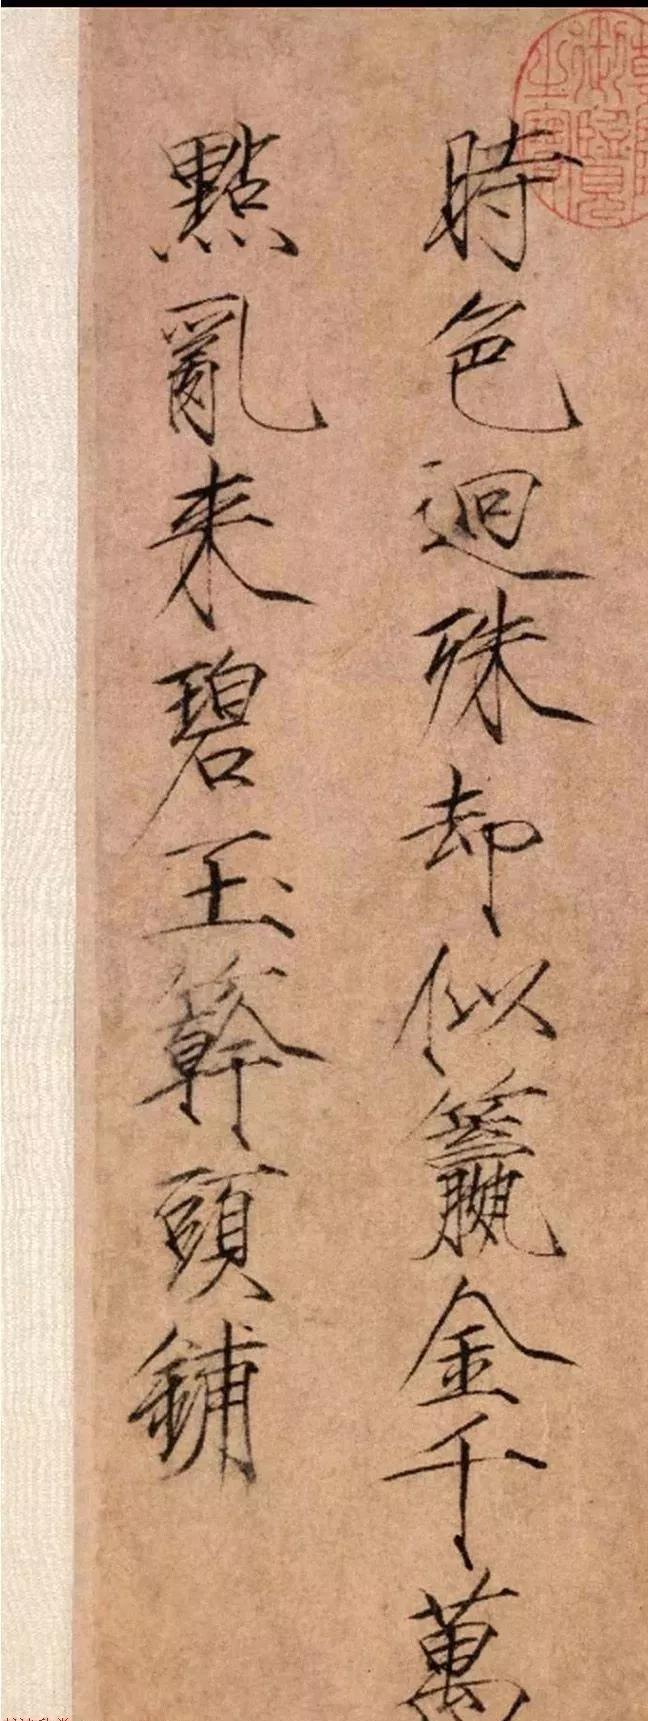 時色迥殊却似籯金千萬
點亂来碧玉簳頭鋪